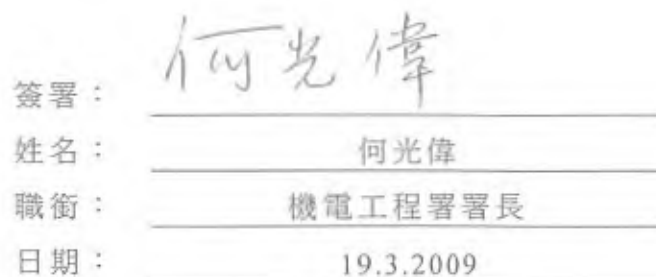 簽署： 何光偉
姓名： 何光偉
職銜： 機電工程署署長
日期： 19.3.2009